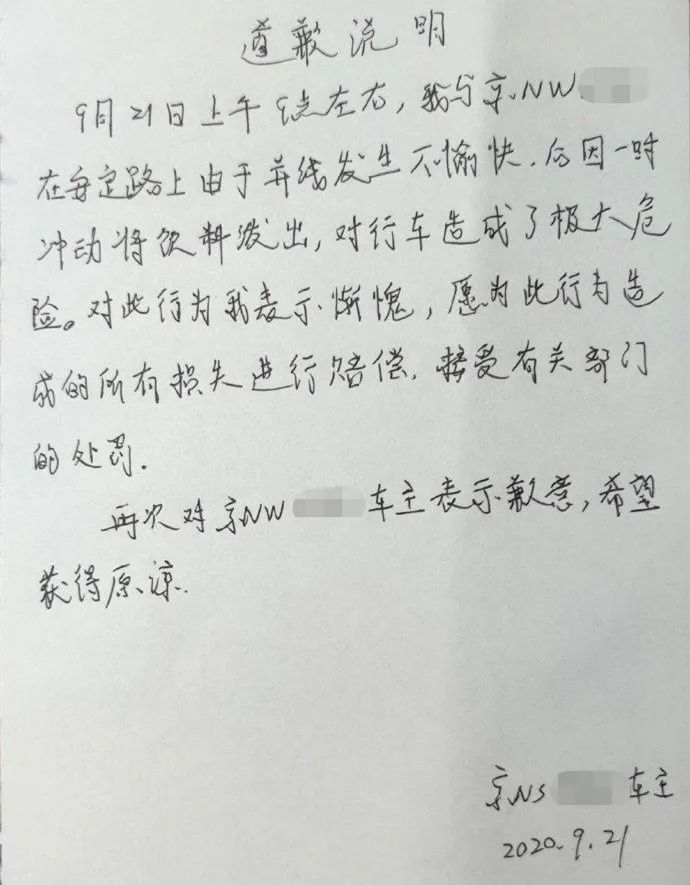 道歉说明
9月21日上午9点左右,我与京NW
在安定路上由于并线发生不愉快,后因一时
冲动将饮料泼出,对行车造成了极大危
险。对此行为我表示惭愧,愿为此行为造
成的所有损失进行赔偿,接受有关部门
的处罚.
再次对京NW 车主表示歉意,希望
获得原谅.
京NS 车主
2020.9.21